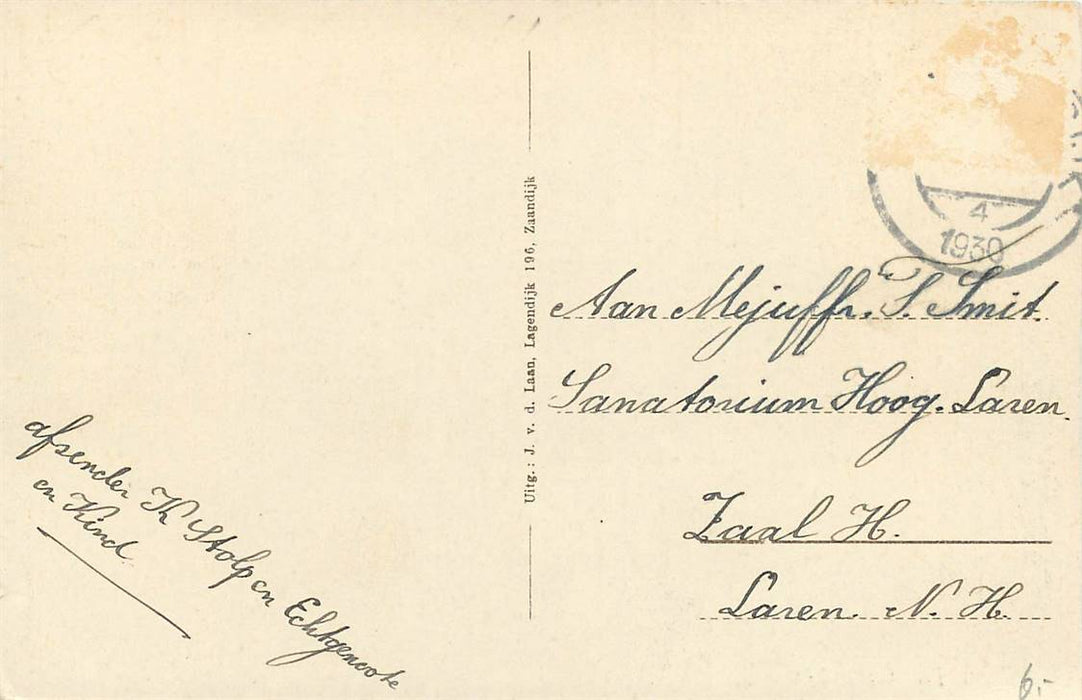 afsender K Stolp en Echtgenoote
en Kind
Uitg.: J. v. d. Laan, Lagendijk 196, Zaandijk
4
1930
Aan Mejuffr. S. Smit.
Sanatorium Hoog. Laren.
Zaal H.
Laren. N. H.
6.-